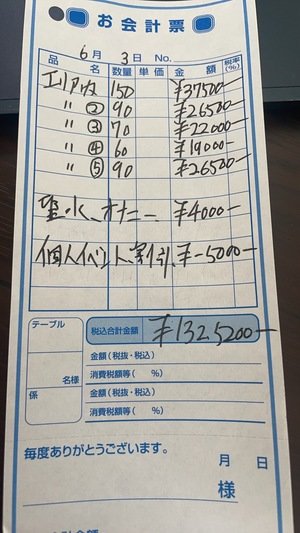 お会計票
6月 3日 No.
品名 数量 単価 金額 税率(%)
150 ¥37500-
〃 ② 90 ¥26500-
〃 ③ 70 ¥22000-
〃 ④ 60 ¥19000-
〃 ⑤ 90 ¥26500-
聖水、オナニー ¥4000-
個人イベント、割引、 ¥-5000-
テーブル
税込合計金額 ¥1325200-
金額(税抜・税込)
名様
消費税額等( %)
係
金額(税抜・税込)
消費税額等( %)
毎度ありがとうございます。
月 日
様